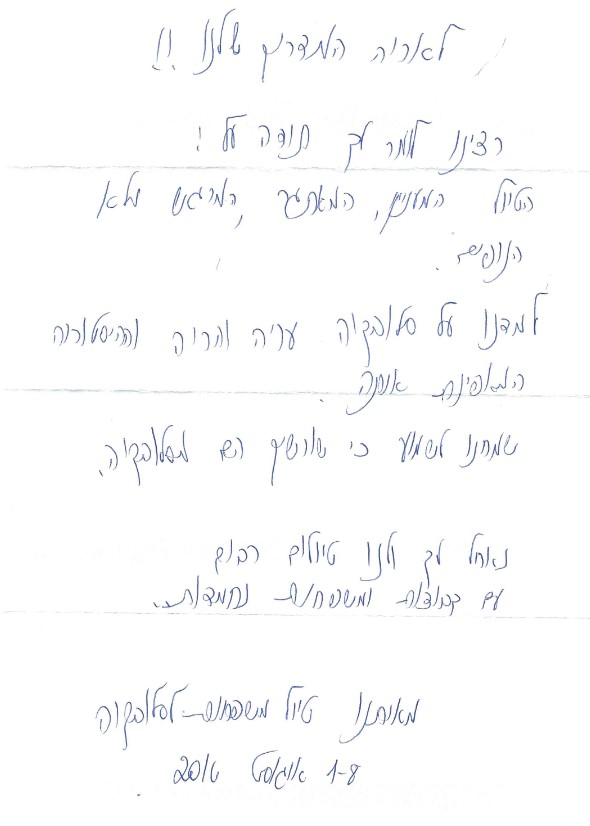 לאריה המדריך שלנו !!
רצינו לומר לך תודה על :
הטיול המעניין, המאתגר, המרגש ומלא
הנופים.
למדנו על סלובקיה עריה והריה וההיסטוריה
המאפיינת אותה.
שמחנו לשמוע כי שורשיך הם מסלובקיה.
נאחל לך ולנו טיולים רבים
עם קבוצות ומשפחות נחמדות.
מאיתנו טיול משפחות - לסלובקיה
1-8 אוגוסט 2016